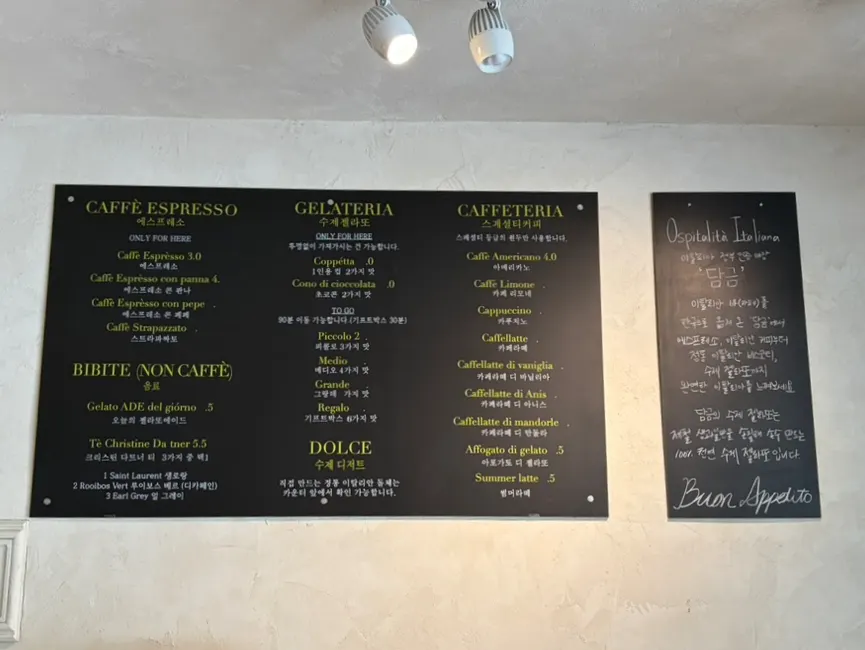 CAFFÈ ESPRESSO
에스프레소
ONLY FOR HERE
Caffè Esprèsso 3.0
에스프레소
Caffè Esprèsso con panna 4.
에스프레소 콘 판나
Caffè Esprèsso con pepe .
에스프레소 콘 페페
Caffè Strapazzato .
스트라파짜토
BIBITE (NON CAFFÈ)
음료
Gelato ADE del giórno .5
오늘의 젤라또에이드
Tè Christine Da tner 5.5
크리스틴 다트너 티 3가지 중 택1
1 Saint Laurent 생로랑
2 Rooibos Vert 루이보스 베르 (디카페인)
3 Earl Grey 얼 그레이
GELATERIA
수제젤라또
ONLY FOR HERE
뚜껑없이 가져가시는 건 가능합니다.
Coppétta .0
1인용 컵 2가지 맛
Cono di cioccolata .0
초코콘 2가지 맛
TO GO
90분 이동 가능합니다 (기프트박스 30분)
Piccolo 2 .
피콜로 3가지 맛
Medio .
메디오 4가지 맛
Grande .
그란데 가지 맛
Regalo
기프트박스 6가지 맛
DOLCE
수제 디저트
직접 만드는 정통 이탈리안 돌체는
카운터 앞에서 확인 가능합니다.
CAFFETERIA
스게셜티커피
스페셜티 등급의 원두만 사용합니다.
Caffè Americano 4.0
아메리카노
Caffè Limone .
카페 리모네
Cappuccino .
카푸치노
Caffellatte .
카페라떼
Caffellatte di vaniglia .
카페라떼 디 바닐리아
Caffellatte di Anis .
카페라떼 디 아니스
Caffellatte di mandorle .
카페라떼 디 만돌라
Affogato di gelato .5
아포가토 디 젤라또
Summer latte .5
썸머라떼
Ospitalità Italiana
이탈리아 정부
'담금'
한국으로 옮겨 논 '담금'에서
에스프레소, 이탈리안 커피부터
정통 이탈리안 비스코티,
수제 젤라또까지
완연한 이탈리아를 느껴보세요.
담금의 수제 젤라또는
제철 생과일만을 손질해 손수 만드는
100% 천연 수제 젤라또 입니다.
Buon Appetito